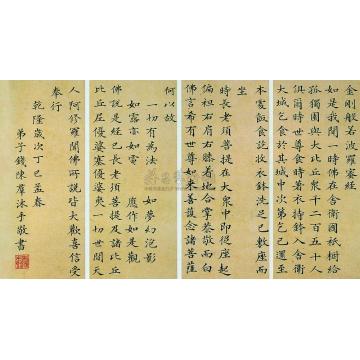 金剛般若波羅蜜經
如是我聞一時佛在舍衛國祇樹給
孤獨園與大比丘衆千二百五十人
俱爾時世尊食時著衣持鉢入舍衛
大城乞食於其城中次第乞已還至
本處飯食訖收衣鉢洗足已敷座而
坐
時長老須菩提在大衆中即從座起
偏袒右肩右膝着地合掌恭敬而白
佛言希有世尊如來善護念諸菩薩
何以故
一切有為法 如夢幻泡影
如露亦如電 應作如是觀
佛說是經已長老須菩提及諸比丘
比丘尼優婆塞優婆夷一切世間天
人阿修羅聞佛所說皆大歡喜信受
奉行
乾隆歲次丁巳孟春
弟子錢陳羣沐手敬書